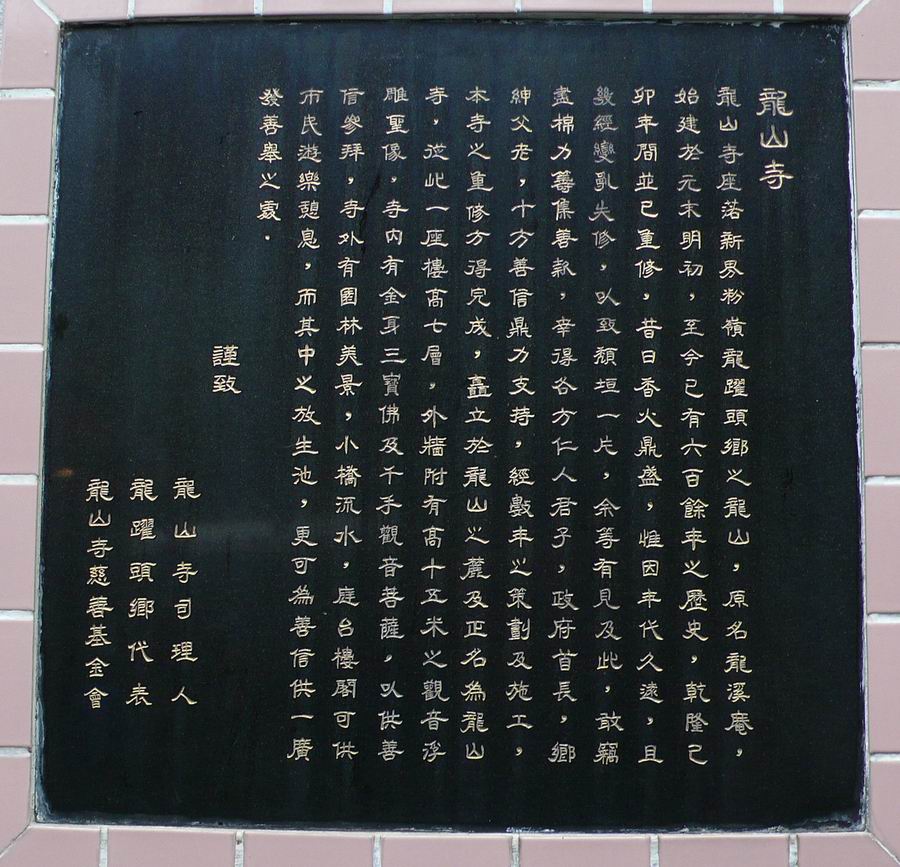 龍山寺
龍山寺座落新界粉嶺龍躍頭鄉之龍山，原名龍溪庵，
始建於元末明初，至今已有六百餘年之歷史，乾隆己
卯年間並已重修，昔日香火鼎盛，惟因年代久遠，且
幾經變亂失修，以致頹垣一片，余等有見及此，敢竭
盡棉力籌集善款，幸得各方仁人君子，政府首長，鄉
紳父老，十方善信鼎力支持，經數年之策劃及施工，
本寺之重修方得完成，矗立於龍山之麓及正名為龍山
寺，從此一座樓高七層，外牆附有高十五米之觀音浮
雕聖像，寺內有金身三寶佛及千手觀音菩薩，以供善
信參拜，寺外有園林美景，小橋流水，庭台樓閣可供
市民遊樂憩息，而其中之放生池，更可為善信供一廣
發善舉之處．
謹致
龍山寺司理人
龍躍頭鄉代表
龍山寺慈善基金會